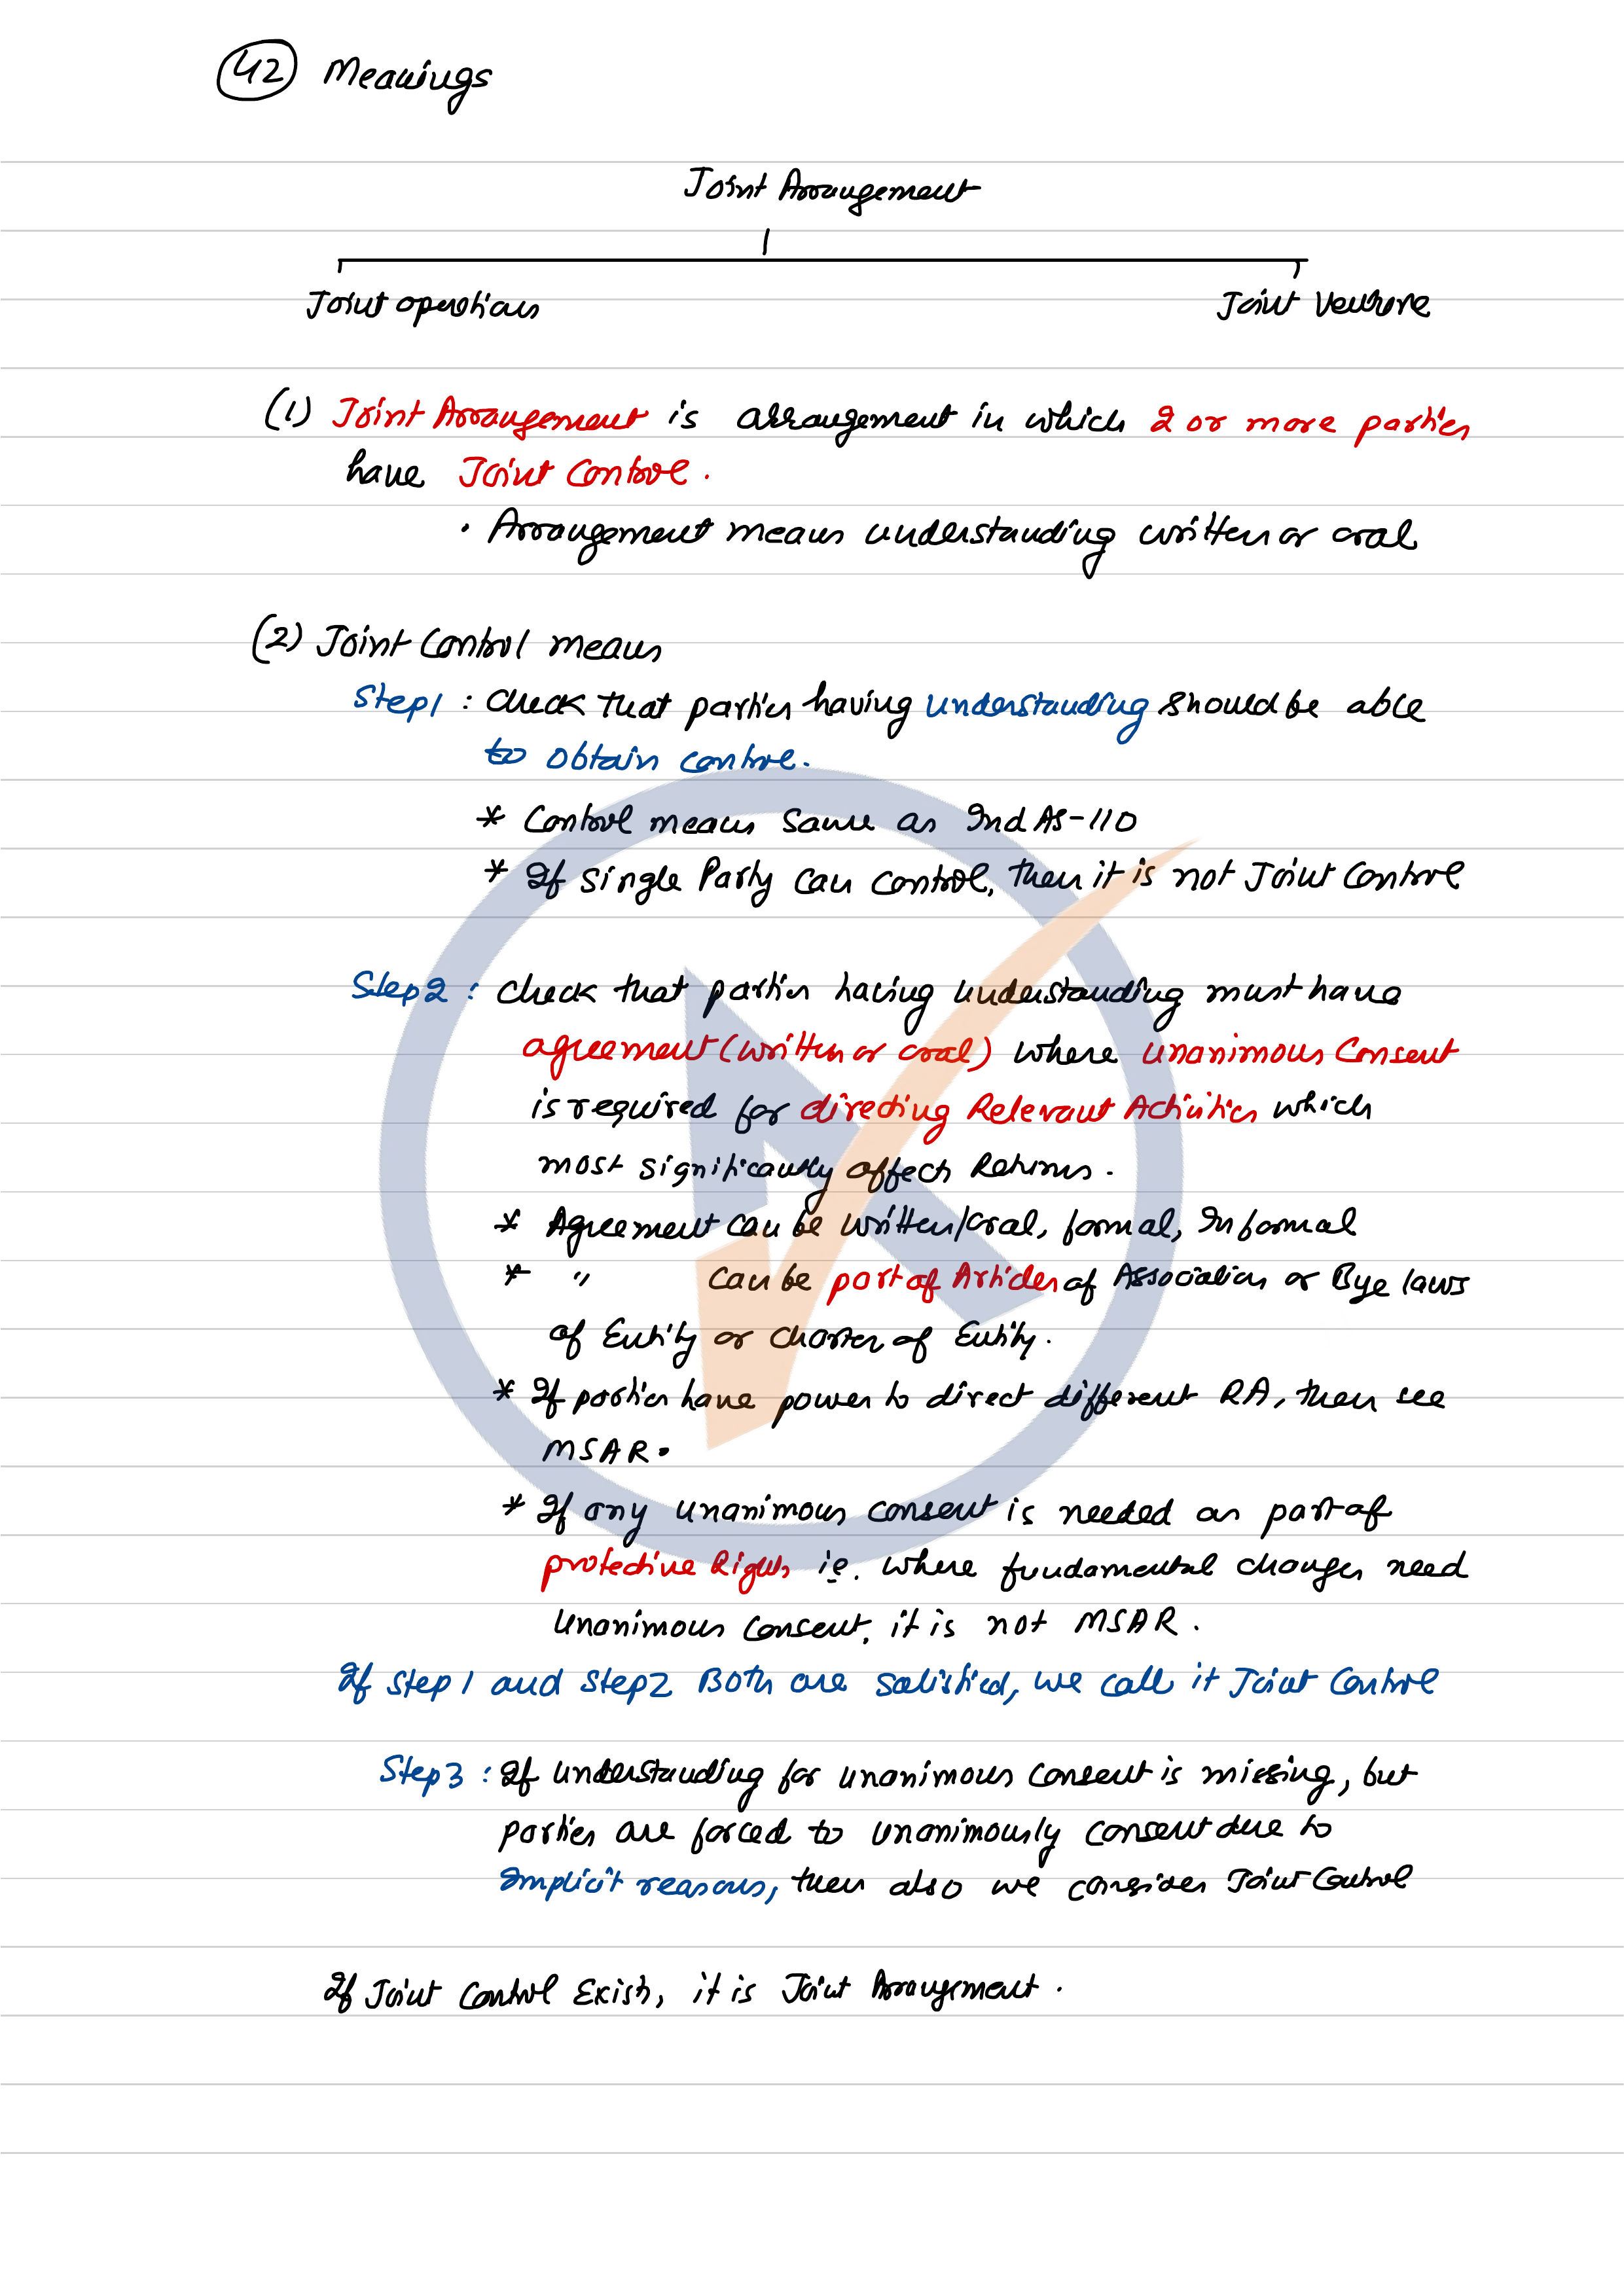 42 Meanings
Joint Arrangement
Joint operations Joint Venture
(1) Joint Arrangement is arrangement in which 2 or more parties
have Joint Control.
• Arrangement means understanding written or oral
(2) Joint Control means
Step1 : Check that parties having understanding should be able
to obtain control.
* Control means same as Ind AS-110
* If single Party can control, then it is not Joint Control
Step2 : Check that parties having understanding must have
agreement (written or oral) where unanimous Consent
is required for directing Relevant Activities which
most significantly affects Returns.
* Agreement can be written/oral, formal, Informal
* " can be part of Articles of Association or Bye laws
of Entity or Charter of Entity.
* If parties have power to direct different RA, then see
MSAR.
* If any unanimous consent is needed as part of
protective Rights ie. where fundamental changes need
unanimous consent, it is not MSAR.
If step1 and step2 Both are satisfied, we call it Joint Control
Step3 : If understanding for unanimous consent is missing, but
parties are forced to unanimously consent due to
Implicit reasons, then also we consider Joint Control
If Joint Control Exists, it is Joint Arrangement.